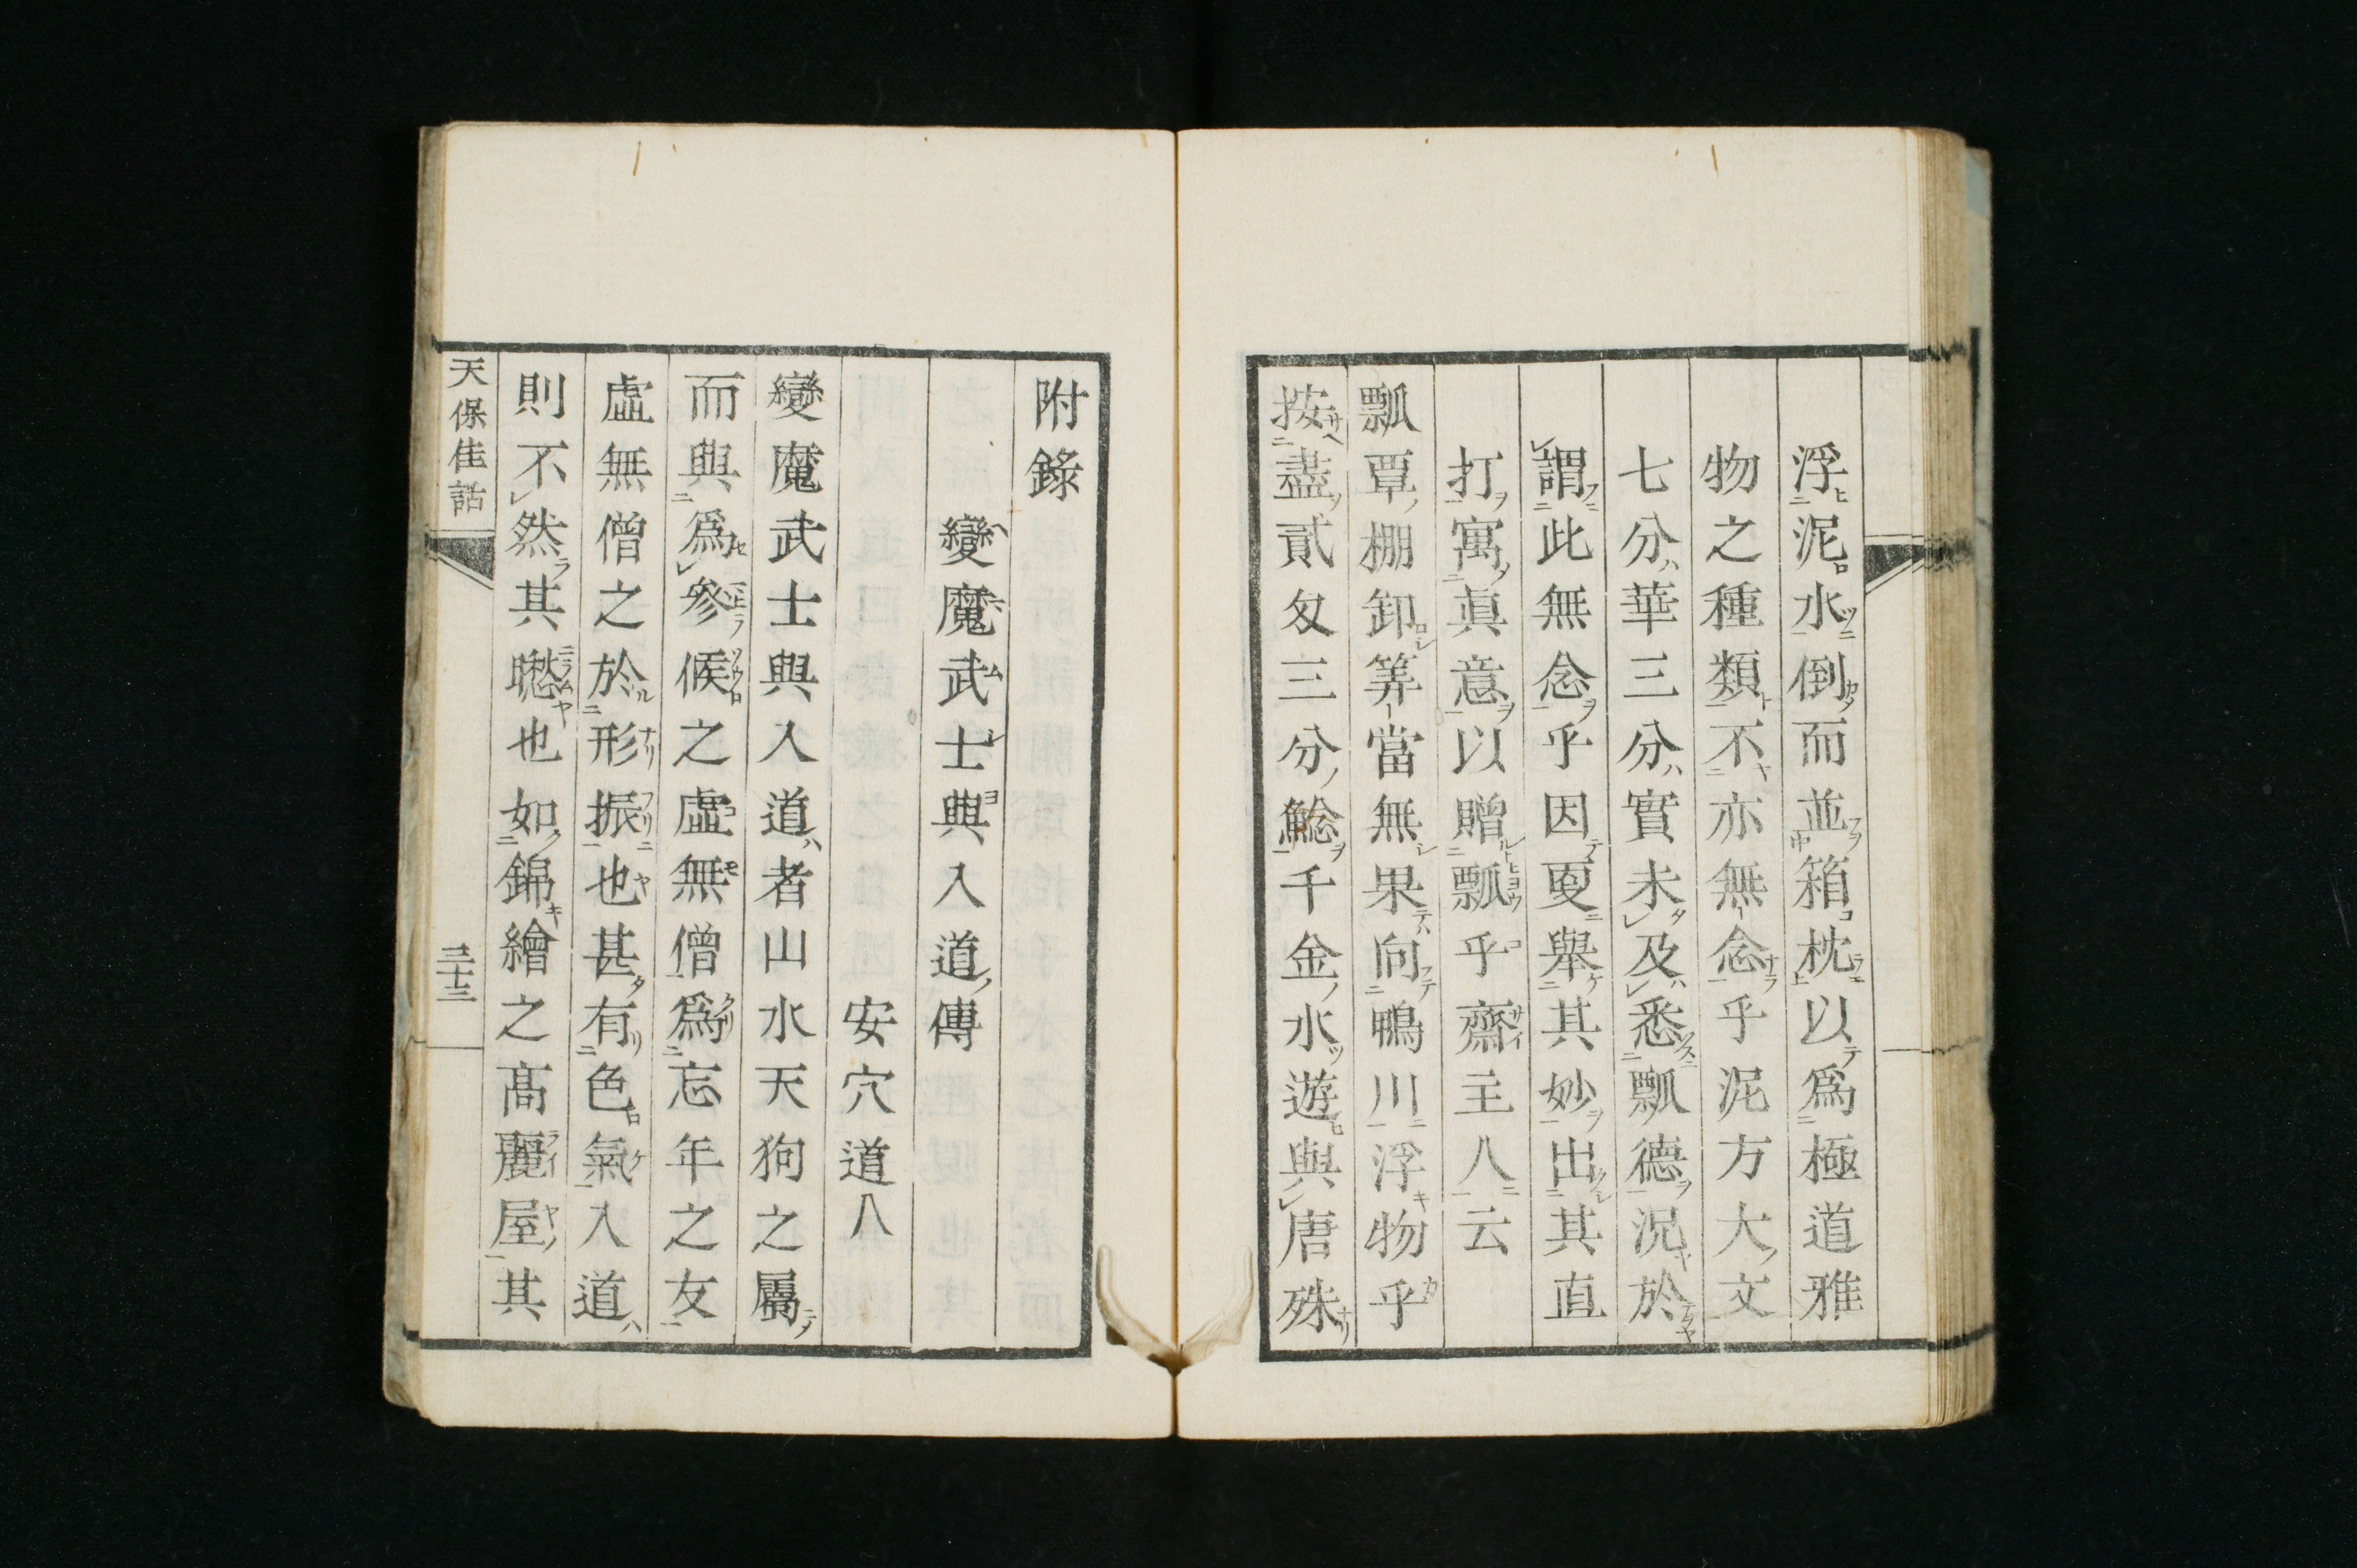 浮泥水倒而並箱枕以爲極道雅
物之種類不亦無念乎泥方大文
七分華三分實未及悉瓢德況於
謂此無念乎因更擧其妙出其直
打寓眞意以贈瓢乎齋主人云
瓢覃棚卸筭當無果向鴨川浮物乎
按盡貳匁三分鯰千金水遊與唐殊
附錄
變魔武士與入道傳
安穴道人
變魔武士與入道者山水天狗之屬
而與爲參候之虛無僧爲忘年之友
虛無僧之於形振也甚有色氣入道
則不然其也如錦繪之高麗屋其
天保佳話
三十三